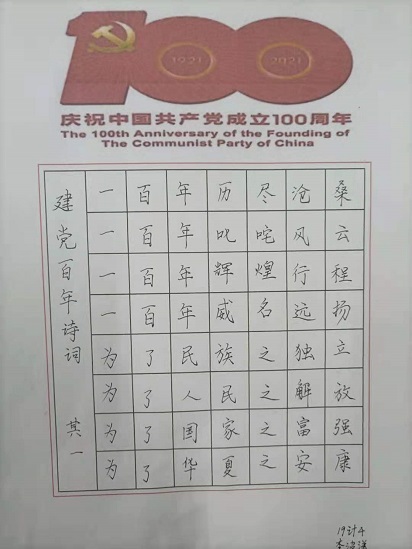 100
1921
2021
庆祝中国共产党成立100周年
The 100th Anniversary of the Founding of
The Communist Party of China
建党百年诗词 其一
一百年历尽沧桑
一百年叱咤风云
一百年辉煌行程
一百年威名远扬
为了民族之独立
为了人民之解放
为了国家之富强
为了华夏之安康
19计4